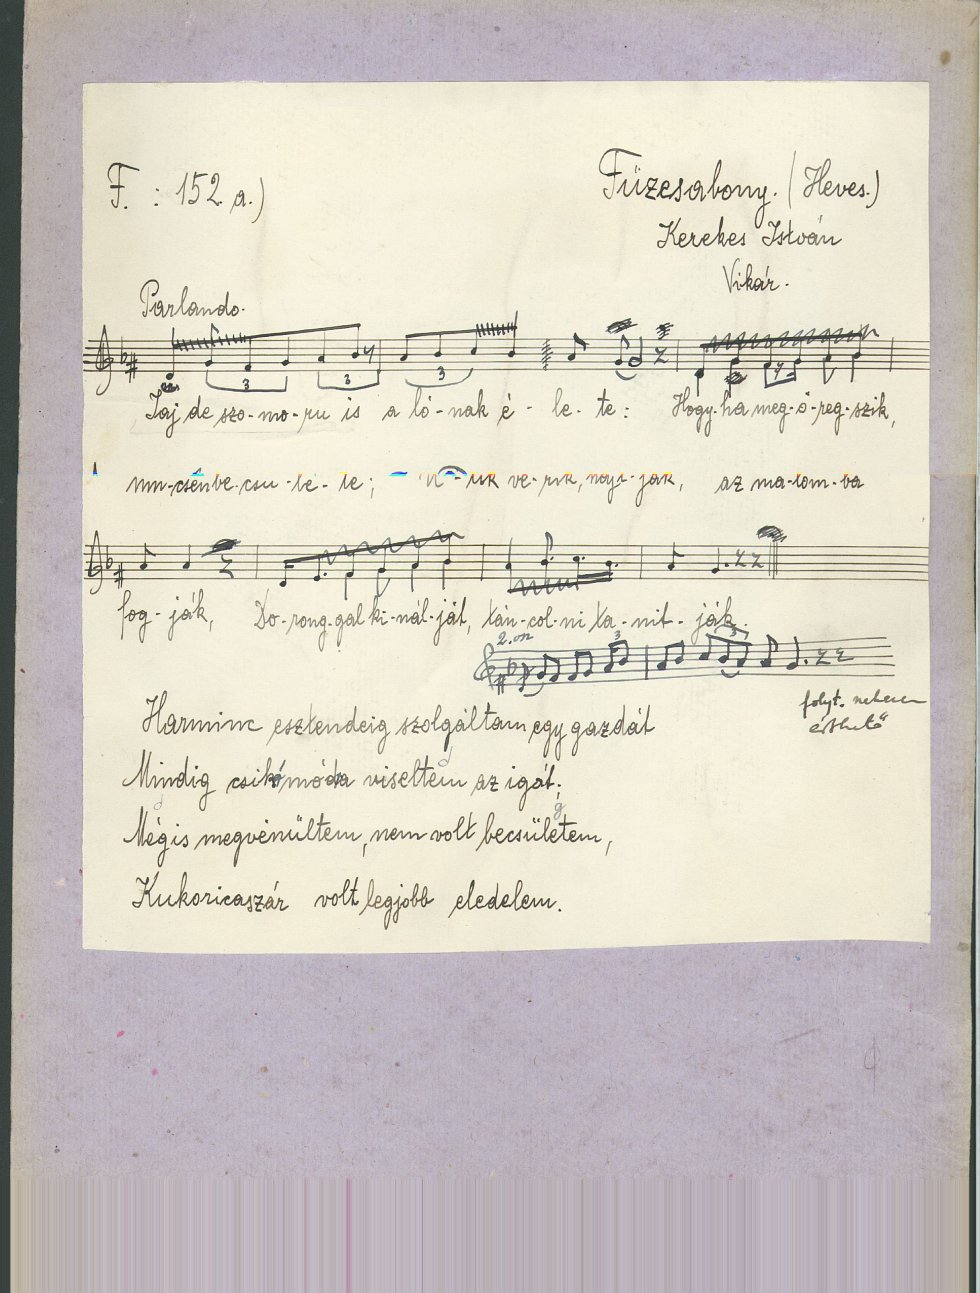 F. : 152 a.)
Füzesabony. (Heves.)
Kerekes István
Vikár.
Parlando.
3 3 3
Jaj de szo-mo-ru is a ló-nak é-le-te: Hogy-ha meg-ö-reg-szik,
ve-rik, nyi-jak, az ma-lom-ba
fog-ják, Do-rong-gal ki-nál-ját, tán-col-ni ta-nit-ják.
2. on
3 3
folyt. nehezen
érthető
Harminc esztendeig szolgáltam egy gazdát
Mindig csikómódra viseltem az igát;
Mégis megvénültem, nem volt becsületem,
Kukoricaszár volt legjobb eledelem.